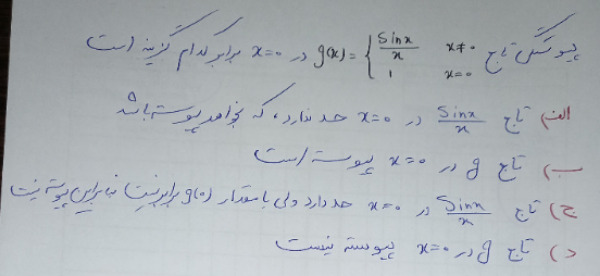 پیوستگی تابع g(x) = { sinx/x x≠0 , 1 x=0 در x=0 برابر کدام گزینه است
الف) تابع sinx/x در x=0 حد ندارد، که بخواهد پیوسته باشد
ب) تابع g در x=0 پیوسته است
ج) تابع sinx/x در x=0 حد دارد ولی با مقدار g(0) برابر نیست بنابراین پیوسته نیست
د) تابع g در x=0 پیوسته نیست